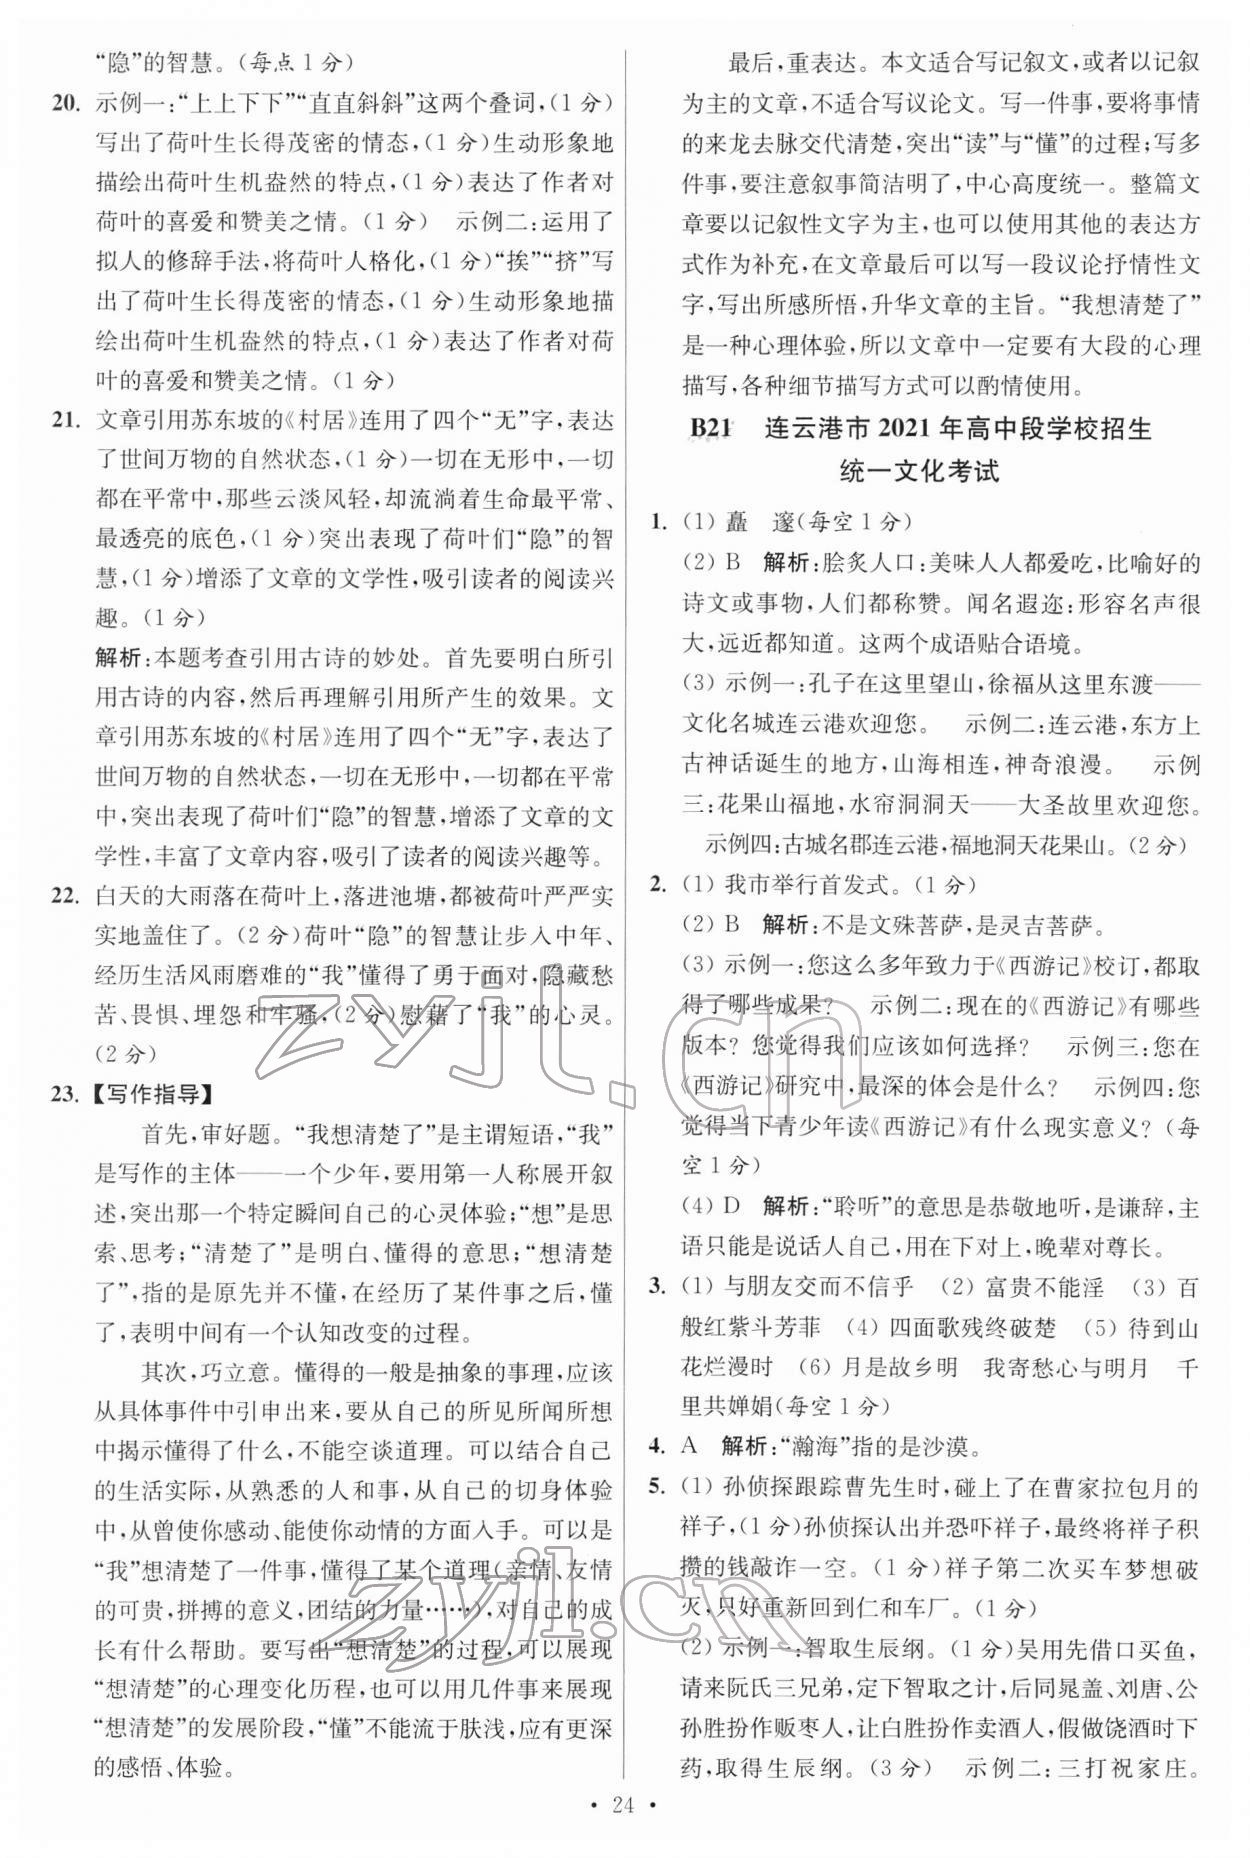 “隐”的智慧。(每点1分)
20. 示例一:“上上下下”“直直斜斜”这两个叠词,(1分)
写出了荷叶生长得茂密的情态,(1分)生动形象地
描绘出荷叶生机盎然的特点,(1分)表达了作者对
荷叶的喜爱和赞美之情。(1分) 示例二:运用了
拟人的修辞手法,将荷叶人格化,(1分)“挨”“挤”写
出了荷叶生长得茂密的情态,(1分)生动形象地描
绘出荷叶生机盎然的特点,(1分)表达了作者对荷
叶的喜爱和赞美之情。(1分)
21. 文章引用苏东坡的《村居》连用了四个“无”字,表达
了世间万物的自然状态,(1分)一切在无形中,一切
都在平常中,那些云淡风轻,却流淌着生命最平常、
最透亮的底色,(1分)突出表现了荷叶们“隐”的智
慧,(1分)增添了文章的文学性,吸引读者的阅读兴
趣。(1分)
解析:本题考查引用古诗的妙处。首先要明白所引
用古诗的内容,然后再理解引用所产生的效果。文
章引用苏东坡的《村居》连用了四个“无”字,表达了
世间万物的自然状态,一切在无形中,一切都在平常
中,突出表现了荷叶们“隐”的智慧,增添了文章的文
学性,丰富了文章内容,吸引了读者的阅读兴趣等。
22. 白天的大雨落在荷叶上,落进池塘,都被荷叶严严实
实地盖住了。(2分)荷叶“隐”的智慧让步入中年、
经历生活风雨磨难的“我”懂得了勇于面对,隐藏愁
苦、畏惧、埋怨和牢骚,(2分)慰藉了“我”的心灵。
(2分)
23. 【写作指导】
首先,审好题。“我想清楚了”是主谓短语,“我”
是写作的主体——一个少年,要用第一人称展开叙
述,突出那一个特定瞬间自己的心灵体验;“想”是思
索、思考;“清楚了”是明白、懂得的意思;“想清楚
了”,指的是原先并不懂,在经历了某件事之后,懂
了,表明中间有一个认知改变的过程。
其次,巧立意。懂得的一般是抽象的事理,应该
从具体事件中引申出来,要从自己的所见所闻所想
中揭示懂得了什么,不能空谈道理。可以结合自己
的生活实际,从熟悉的人和事,从自己的切身体验
中,从曾使你感动、能使你动情的方面入手。可以是
“我”想清楚了一件事,懂得了某个道理(亲情、友情
的可贵,拼搏的意义,团结的力量……),对自己的成
长有什么帮助。要写出“想清楚”的过程,可以展现
“想清楚”的心理变化历程,也可以用几件事来展现
“想清楚”的发展阶段,“懂”不能流于肤浅,应有更深
的感悟、体验。
最后,重表达。本文适合写记叙文,或者以记叙
为主的文章,不适合写议论文。写一件事,要将事情
的来龙去脉交代清楚,突出“读”与“懂”的过程;写多
件事,要注意叙事简洁明了,中心高度统一。整篇文
章要以记叙性文字为主,也可以使用其他的表达方
式作为补充,在文章最后可以写一段议论抒情性文
字,写出所感所悟,升华文章的主旨。“我想清楚了”
是一种心理体验,所以文章中一定要有大段的心理
描写,各种细节描写方式可以酌情使用。
B21 连云港市2021年高中段学校招生
统一文化考试
1. (1) 矗 邃(每空1分)
(2) B 解析:脍炙人口:美味人人都爱吃,比喻好的
诗文或事物,人们都称赞。闻名遐迩:形容名声很
大,远近都知道。这两个成语贴合语境。
(3) 示例一:孔子在这里望山,徐福从这里东渡——
文化名城连云港欢迎您。 示例二:连云港,东方上
古神话诞生的地方,山海相连,神奇浪漫。 示例
三:花果山福地,水帘洞洞天——大圣故里欢迎您。
示例四:古城名郡连云港,福地洞天花果山。(2分)
2. (1) 我市举行首发式。(1分)
(2) B 解析:不是文殊菩萨,是灵吉菩萨。
(3) 示例一:您这么多年致力于《西游记》校订,都取
得了哪些成果? 示例二:现在的《西游记》有哪些
版本?您觉得我们应该如何选择? 示例三:您在
《西游记》研究中,最深的体会是什么? 示例四:您
觉得当下青少年读《西游记》有什么现实意义?(每
空1分)
(4) D 解析:“聆听”的意思是恭敬地听,是谦辞,主
语只能是说话人自己,用在下对上,晚辈对尊长。
3. (1) 与朋友交而不信乎 (2) 富贵不能淫 (3) 百
般红紫斗芳菲 (4) 四面歌残终破楚 (5) 待到山
花烂漫时 (6) 月是故乡明 我寄愁心与明月 千
里共婵娟(每空1分)
4. A 解析:“瀚海”指的是沙漠。
5. (1) 孙侦探跟踪曹先生时,碰上了在曹家拉包月的
祥子,(1分)孙侦探认出并恐吓祥子,最终将祥子积
攒的钱敲诈一空。(1分)祥子第二次买车梦想破
灭,只好重新回到仁和车厂。(1分)
(2) 示例一:智取生辰纲。(1分)吴用先借口买鱼,
请来阮氏三兄弟,定下智取之计,后同晁盖、刘唐、公
孙胜扮作贩枣人,让白胜扮作卖酒人,假做饶酒时下
药,取得生辰纲。(3分) 示例二:三打祝家庄。
• 24 •
zyjl.cn
zyjl.cn